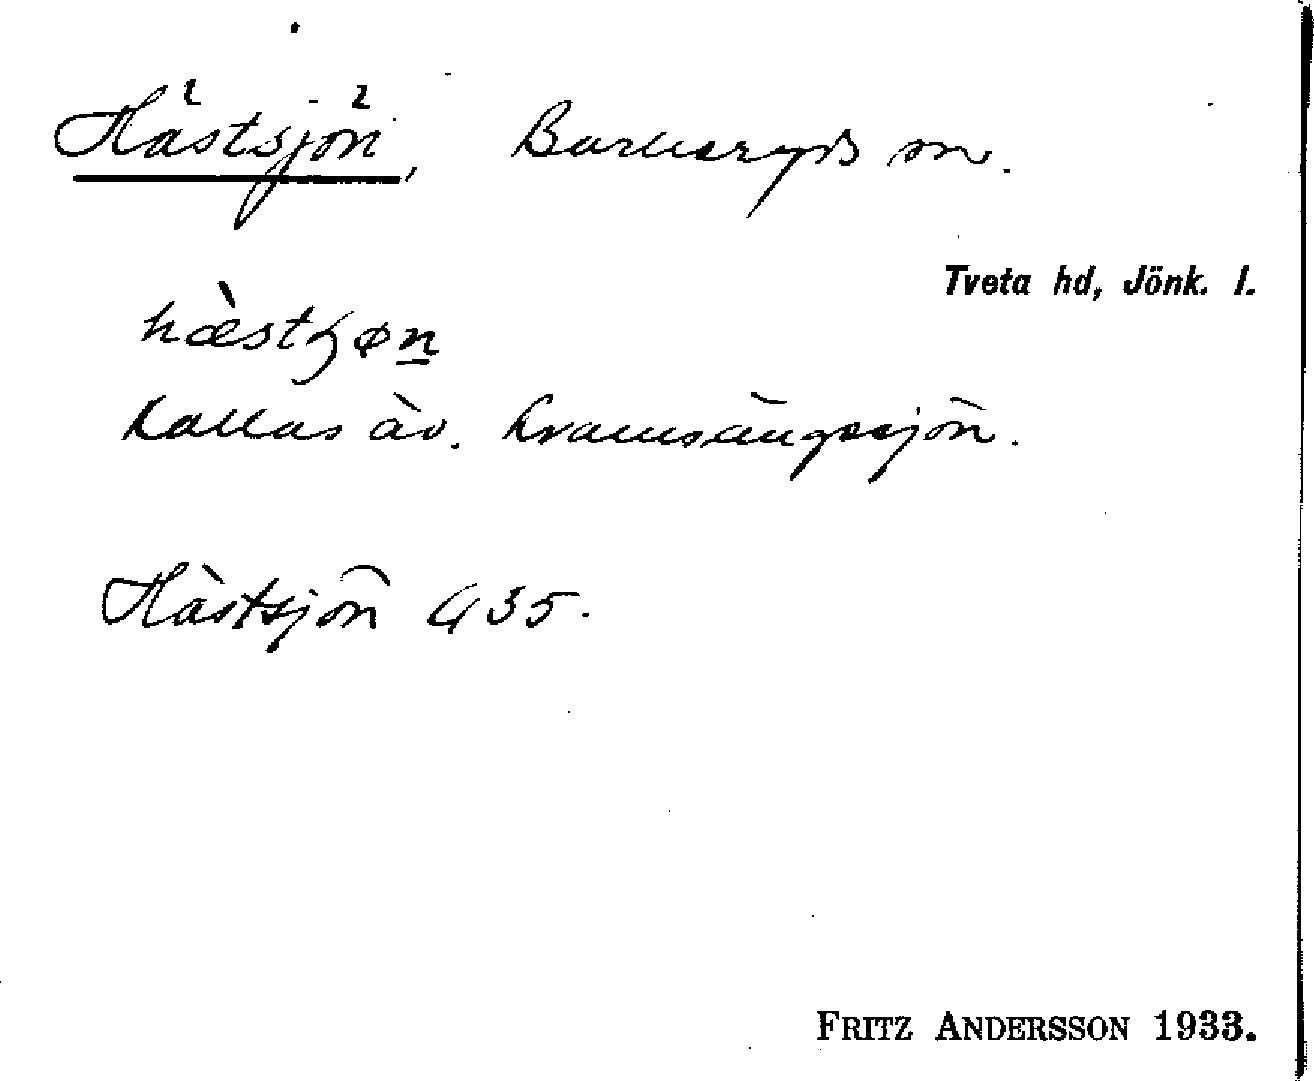 Hästsjön, Barkeryds sn.
Tveta hd, Jönk. l.
hæ̀stʒøn
kallas äv. Kramsängssjön.
Hästsjön G 35.
FRITZ ANDERSSON 1933.